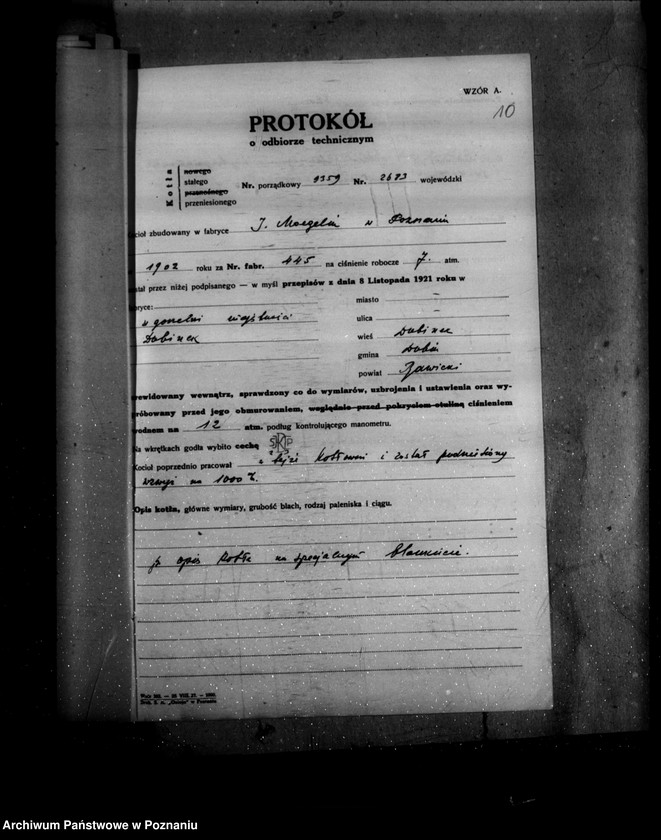 WZÓR A.
10
PROTOKÓŁ
o odbiorze technicznym
Kotła
nowego
stałego
przenośnego
przeniesionego
Nr. porządkowy 9359 Nr. 2673 wojewódzki
Kocioł zbudowany w fabryce J. Moegelin w Poznaniu
1902 roku za Nr. fabr. 445 na ciśnienie robocze 7. atm.
stał przez niżej podpisanego — w myśl przepisów z dnia 8 Listopada 1921 roku w
bryce:
miasto —
w gorzelni majętności
ulica —
Dubinek
wieś Dubinek
gmina Dubin
powiat Rawicki
rewidowany wewnątrz, sprawdzony co do wymiarów, uzbrojenia i ustawienia oraz wy-
próbowany przed jego obmurowaniem, względnie przed pokryciem otuliną ciśnieniem
wodnem na 12 atm. podług kontrolującego manometru.
Na wkrętkach godła wybito cechę SKP
Kocioł poprzednio pracował w tejże kotłowni i został podniesiony
wzwyż na 1000 %.
Opis kotła, główne wymiary, grubość blach, rodzaj paleniska i ciągu.
p. opis kotła na specjalnym blankiecie.
Archiwum Państwowe w Poznaniu